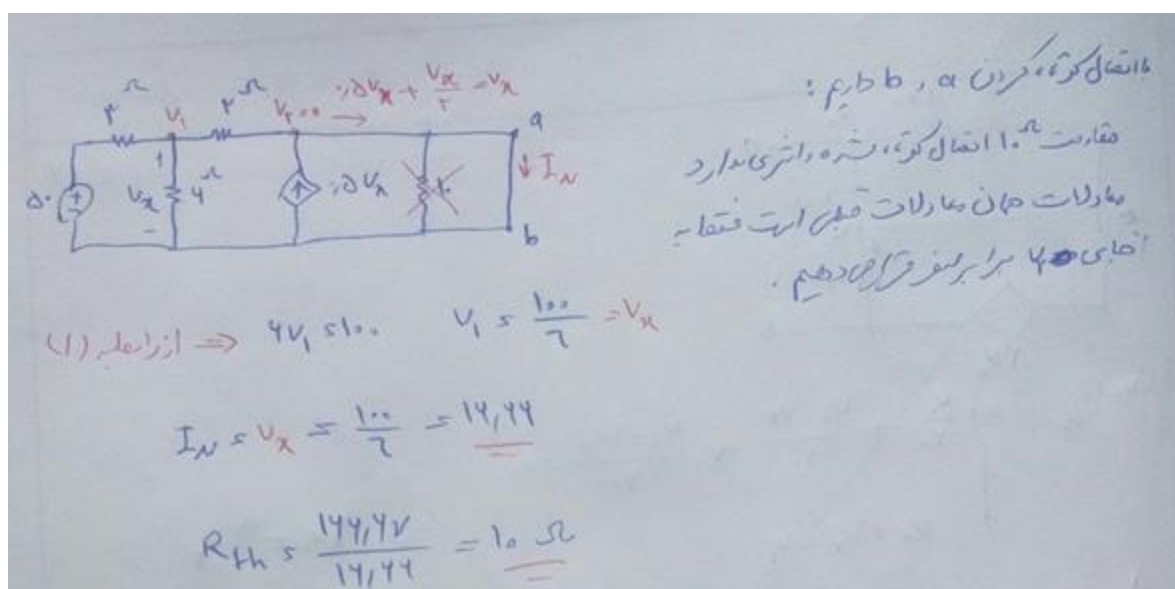 با اتصال کوتاه کردن a و b داریم :
مقاومت ۱۰Ω اتصال کوتاه شده و اثری ندارد
معادلات همان معادلات قبلی است فقط به
برابر صفر قرار می‌دهیم .
۰٫۵Vx + Vx/۲ = Vx
۳Ω V₁ ۲Ω V₂=۰ → a
۵۰ + Vx - ۶Ω ۰٫۵Vx ۱۰ ↓ I_N
b
از رابطه (1) ⇒ ۶V₁ = ۱۰۰ V₁ = ۱۰۰/۶ = Vx
I_N = Vx = ۱۰۰/۶ = ۱۶,۶۶
R_th = ۱۶۶,۶۷/۱۶,۶۶ = ۱۰ Ω